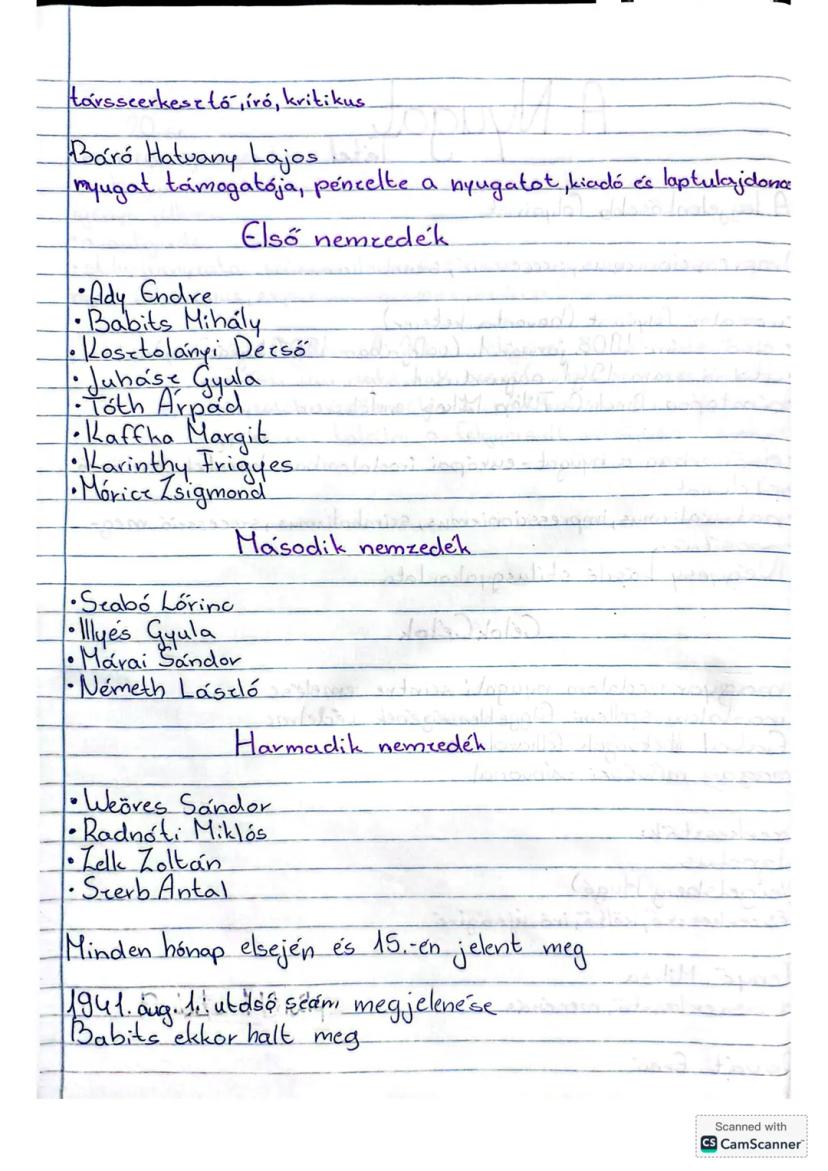 társszerkesztő, író, kritikus
Báró Hatvany Lajos
nyugat támogatója, pénzelte a nyugatot, kiadó és laptulajdona
Első nemzedék
• Ady Endre
• Babits Mihály
• Kosztolányi Dezső
• Juhász Gyula
• Tóth Árpád
• Kaffha Margit
• Karinthy Frigyes
• Móricz Zsigmond
Második nemzedék
• Szabó Lőrinc
• Illyés Gyula
• Márai Sándor
• Németh László
Harmadik nemzedék
• Weöres Sándor
• Radnóti Miklós
• Zelk Zoltán
• Szerb Antal
Minden hónap elsején és 15.-én jelent meg
1941. aug. 1. utolsó szám megjelenése
Babits ekkor halt meg
Scanned with
CS CamScanner